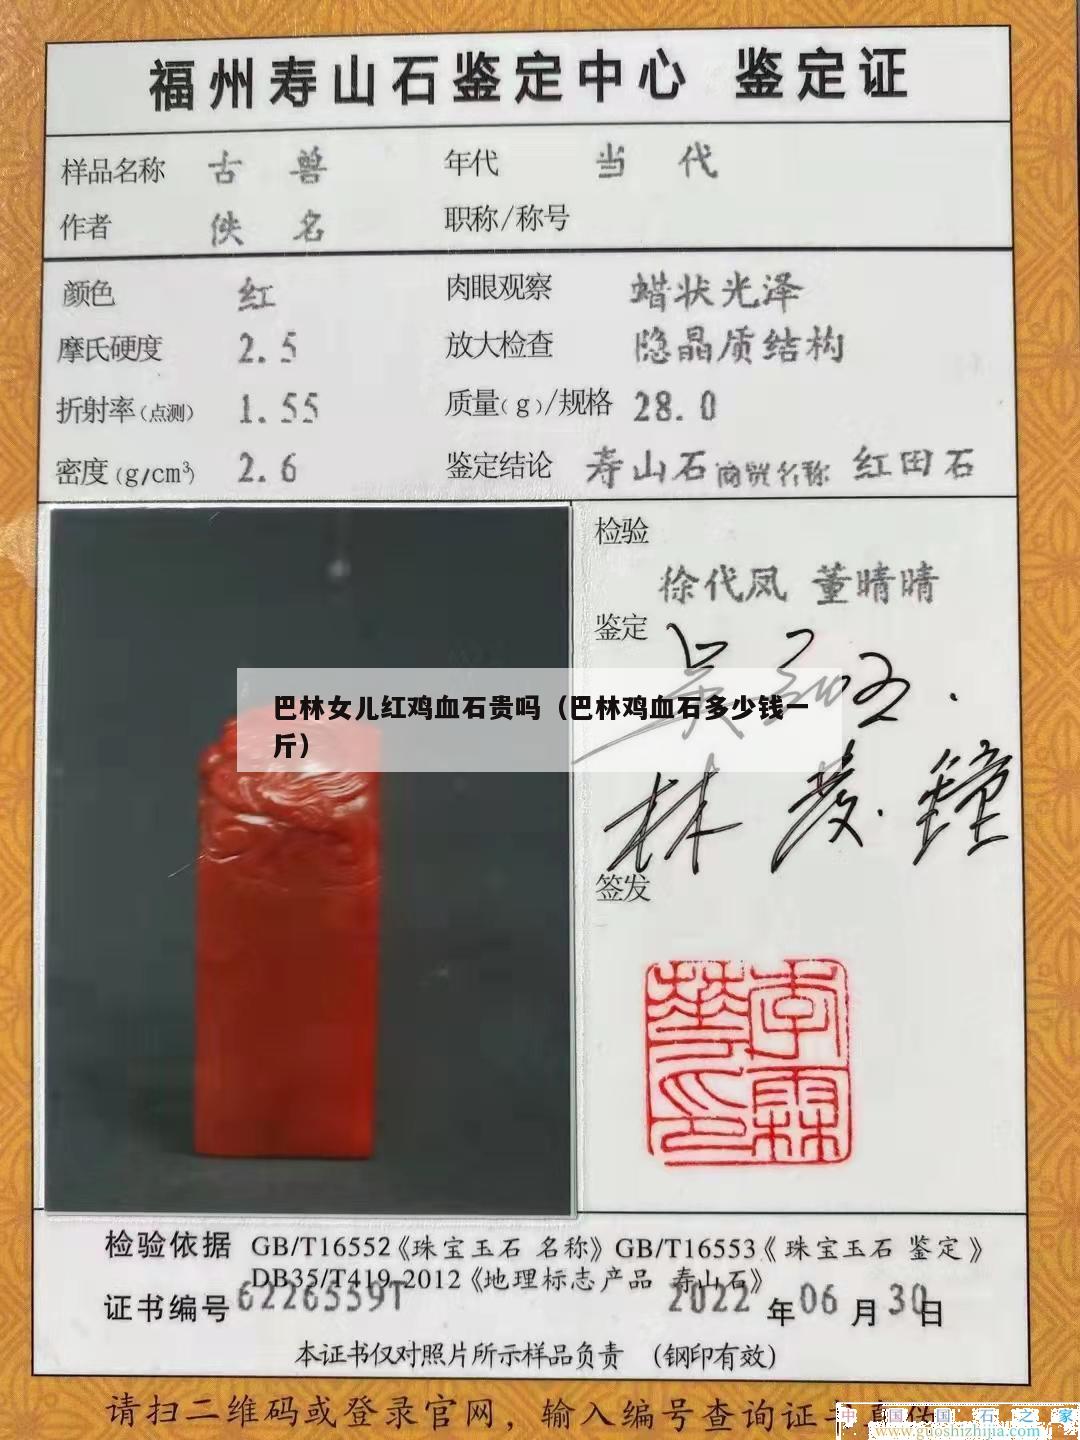 福州寿山石鉴定中心 鉴定证
样品名称 古兽 年代 当代
作者 佚名 职称/称号
颜色 红 肉眼观察 蜡状光泽
摩氏硬度 2.5 放大检查 隐晶质结构
折射率(点测) 1.55 质量(g)/规格 28.0
密度(g/cm³) 2.6 鉴定结论 寿山石 商贸名称 红田石
检验
徐代凤 董晴晴
鉴定
巴林女儿红鸡血石贵吗（巴林鸡血石多少钱一
斤）
林
签发
检验依据 GB/T16552《珠宝玉石 名称》GB/T16553《珠宝玉石 鉴定》
DB35/T419-2012《地理标志产品 寿山石》
证书编号 6226559T 2022年06月30日
本证书仅对照片所示样品负责 （钢印有效）
请扫二维码或登录官网，输入编号查询证书真伪
中国国石之家
www.guoshizhijia.com